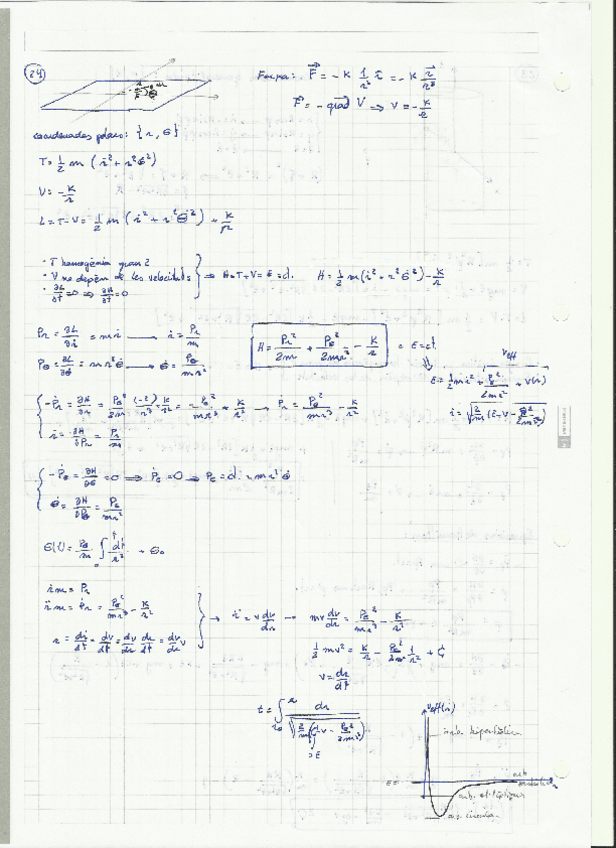 24
Força: F = -K 1/r² r̂ = -K r/r³
F = -grad V ⇒ V = -K/r
coordenades polars: {r, θ}
T = 1/2 m (ṙ² + r²θ̇²)
V = -K/r
L = T-V = 1/2 m (ṙ² + r²θ̇²) + K/r
· T homogènia grau 2
· V no depèn de les velocitats ⇒ H = T+V = E = ct. H = 1/2 m(ṙ² + r²θ̇²) - K/r
· ∂L/∂t = 0 ⇒ ∂H/∂t = 0
Pr = ∂L/∂ṙ = mṙ → ṙ = Pr/m
Pθ = ∂L/∂θ̇ = mr²θ̇ → θ̇ = Pθ/mr²
H = Pr²/2m + Pθ²/2mr² - K/r = E = ct
Veff
E = 1/2 mṙ² + Pθ²/2mr² + V(r)
-Ṗr = ∂H/∂r = Pθ²/2m (-2)/r³ + K/r² = -Pθ²/mr³ + K/r² → Ṗr = Pθ²/mr³ - K/r²
ṙ = ∂H/∂Pr = Pr/m
-Ṗθ = ∂H/∂θ = 0 ⇒ Ṗθ = 0 ⇒ Pθ = ct = mr²θ̇
θ̇ = ∂H/∂Pθ = Pθ/mr²
θ(t) = Pθ/m ∫₀ᵗ dt/r² + θ₀
ṙm = Pr
r̈m = Ṗr = Pθ²/mr³ - K/r²
r̈ = dṙ/dt = dv/dt = dv/dr dr/dt = dv/dr v
→ r̈ = v dv/dr → mv dv/dr = Pθ²/mr³ - K/r²
1/2 mv² = K/r - Pθ²/2m 1/r² + C
v = dr/dt
t = ∫ dr / √(2/m (C - V - Pθ²/2mr²))
= E
Veff(r)
òrb. el·líptiques
òrb. circular